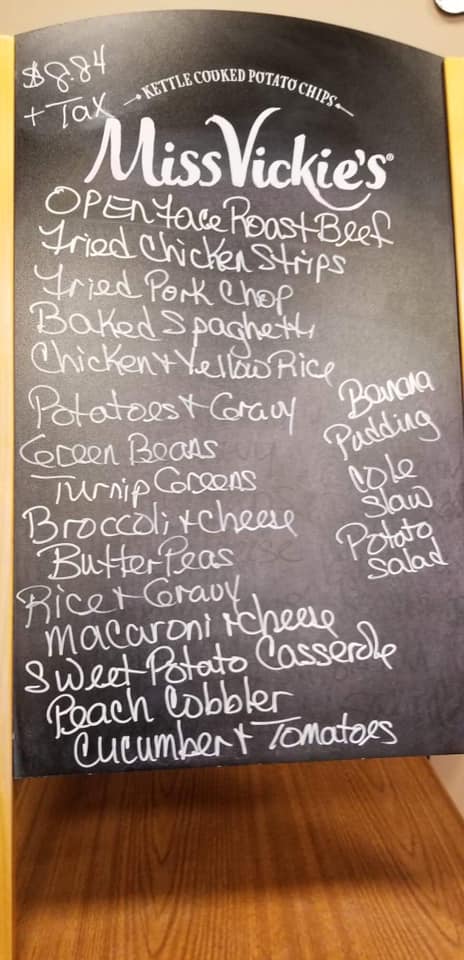 $8.84
+ Tax
KETTLE COOKED POTATO CHIPS
Miss Vickie's®
OPEN Face Roast Beef
Fried Chicken Strips
Fried Pork Chop
Baked Spaghetti
Chicken + Yellow Rice
Potatoes + Gravy
Green Beans
Turnip Greens
Broccoli + Cheese
Butter Peas
Rice + Gravy
macaroni + cheese
Sweet Potato Casserole
Peach Cobbler
Cucumber + Tomatoes
Banana
Pudding
Cole
Slaw
Potato
Salad